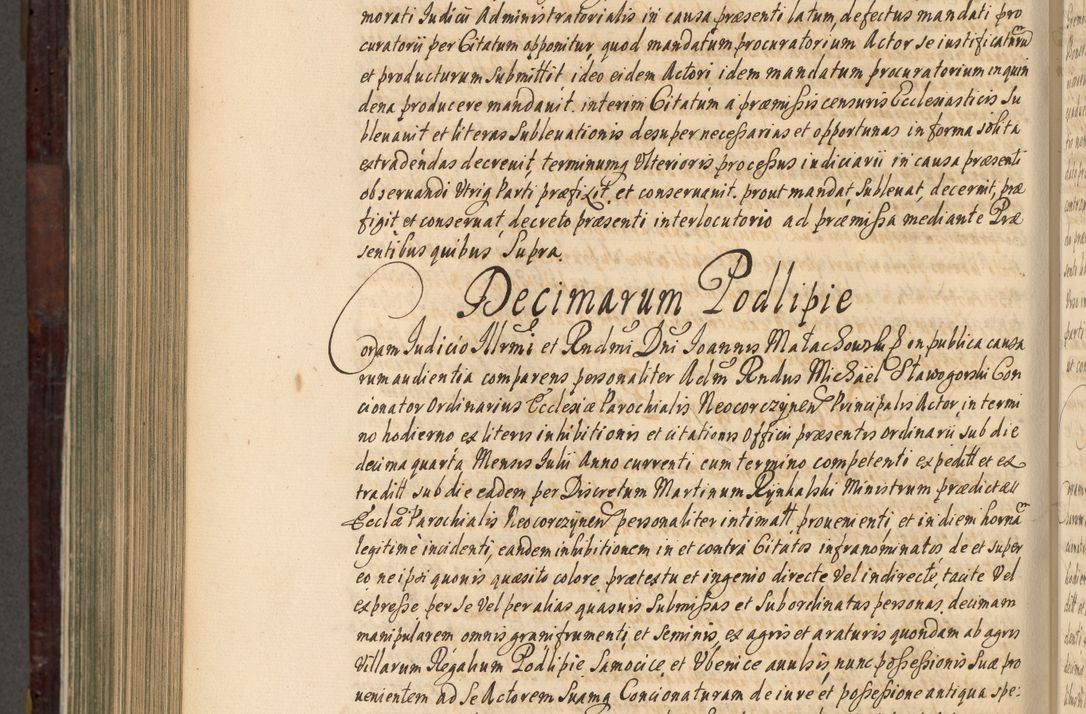 morati Iudicii Administratorialis in causa præsenti latum, defectus mandati pro
curatorii per Citatum opponitur, quod mandatum procuratorium Actor se iustificaturu
et producturum submittit ideo eidem Actori idem mandatum procuratorium in quin
dena producere mandavit. interim Citatum a præmissis censuris Ecclesiasticis Su
blevavit et literas Sublevationis desuper necessarias et opportunas in forma solita
extradendas decrevit, terminumq Ulterioris processus iudiciarii in causa præsenti
observandi Utriq Parti præfixit, et conservavit. prout mandat Sublevat, decernit, præ
figit et conservat, decreto præsenti interlocutorio ad præmissa mediante Præ
sentibus quibus Supra.
Decimarum Podlipie
Coram Iudicio Illrmi et Rndmi Dni Ioannis Małachowski E in publica causa
rum audientia comparens personaliter Adm Rndus Michaël Stawogorski Con
cionator Ordinarius Ecclesiæ Parochialis Neocorczynen Principalis Actor, in termi
no hodierno ex literis inhibitionis et citationis Officii præsentis Ordinarii sub die
decima quarta Mensis Iulii Anno currenti cum termino competenti expeditt et ex
traditt sub die eadem per Discretum Martinum Rynkalski Ministrum prædictæ
Ecclæ Parochialis Neocorczynen personaliter intimatt provenienti, et in diem hornā
legitime incidenti, eandem inhibitionem in et contra Citatos infranominatos de et super
eo ne ipsi quovis quæsito colore prætextu et ingenio directe Vel indirecte, tacite Vel
expresse per se Vel per alias quasvis Submissas et Subordinatas personas, decimam
manipularem omnis grani frumenti et seminis, ex agris et araturis quondam ab agris
Villarum Regalium Podlipie Samocice et Ubenice avulsis, nunc possessionis Suæ pro
venientem ad Se Actorem Suamq Concionaturam de iure et possessione antiqua spe-